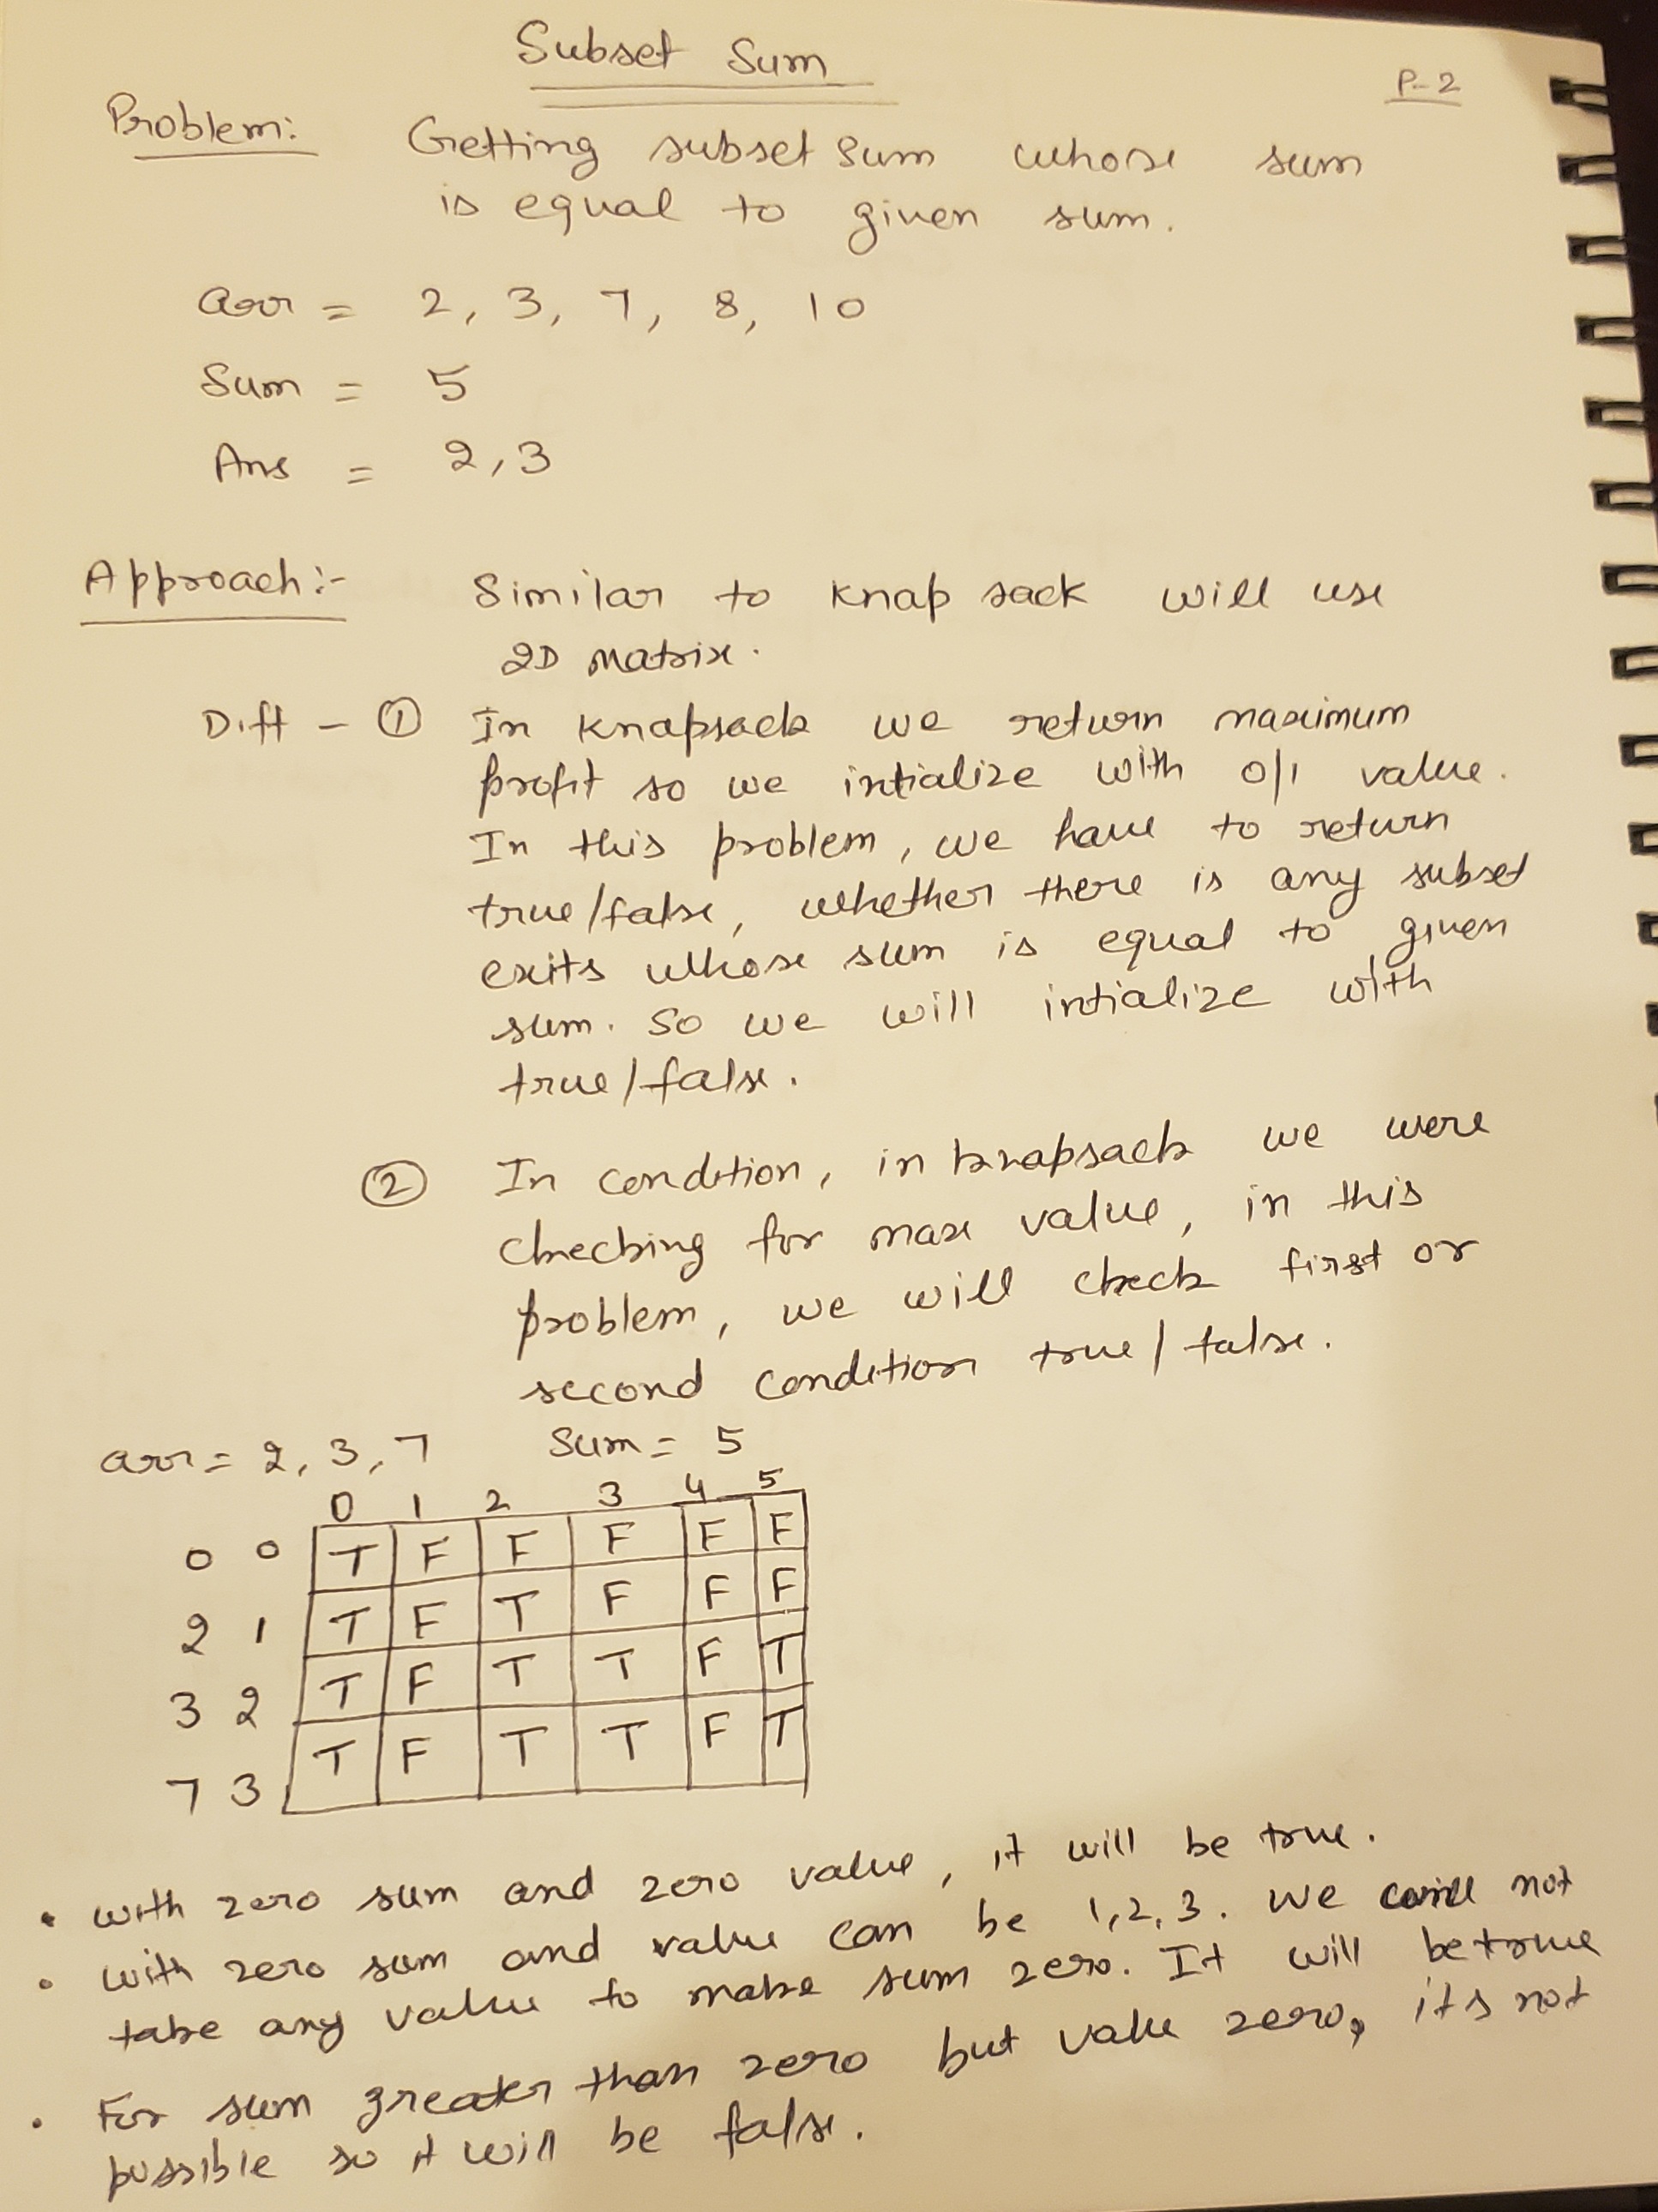 Subset Sum
P-2
Problem: Getting subset sum whose sum
is equal to given sum.
arr = 2, 3, 7, 8, 10
Sum = 5
Ans = 2,3
Approach:- Similar to knap sack will use
2D matrix.
Diff - ① In knapsack we return maximum
profit so we intialize with 0/1 value.
In this problem, we have to return
true/false, whether there is any subset
exits whose sum is equal to given
sum. So we will intialize with
true/false.
② In condition, in knapsack we were
checking for max value, in this
problem, we will check first or
second condition true/false.
arr = 2, 3, 7 Sum = 5
0 1 2 3 4 5
0 0 T F F F F F
2 1 T F T F F F
3 2 T F T T F T
7 3 T F T T F T
• with zero sum and zero value, it will be true.
• with zero sum and value can be 1,2,3. we will not
take any value to make sum zero. It will be true
• For sum greater than zero but value zero, its not
possible so it will be false.